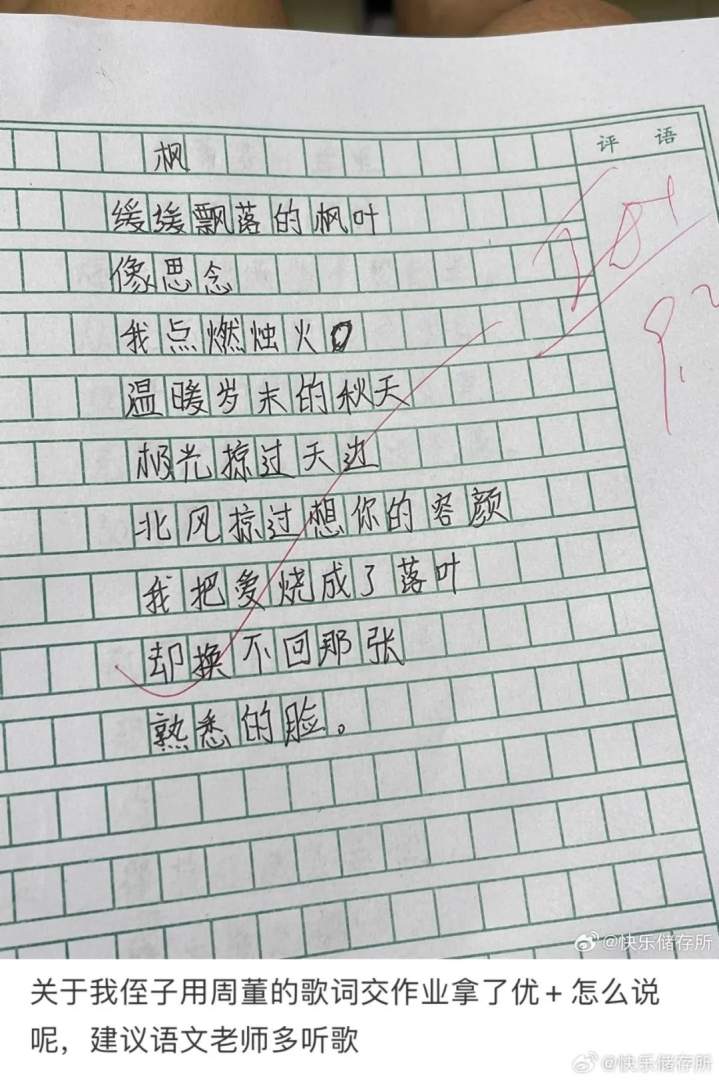 评 语
枫
缓缓飘落的枫叶
像思念
我点燃烛火
温暖岁末的秋天
极光掠过天边
北风掠过想你的容颜
我把爱烧成了落叶
却换不回那张
熟悉的脸。
@快乐储存所
关于我侄子用周董的歌词交作业拿了优+ 怎么说
呢，建议语文老师多听歌
@快乐储存所